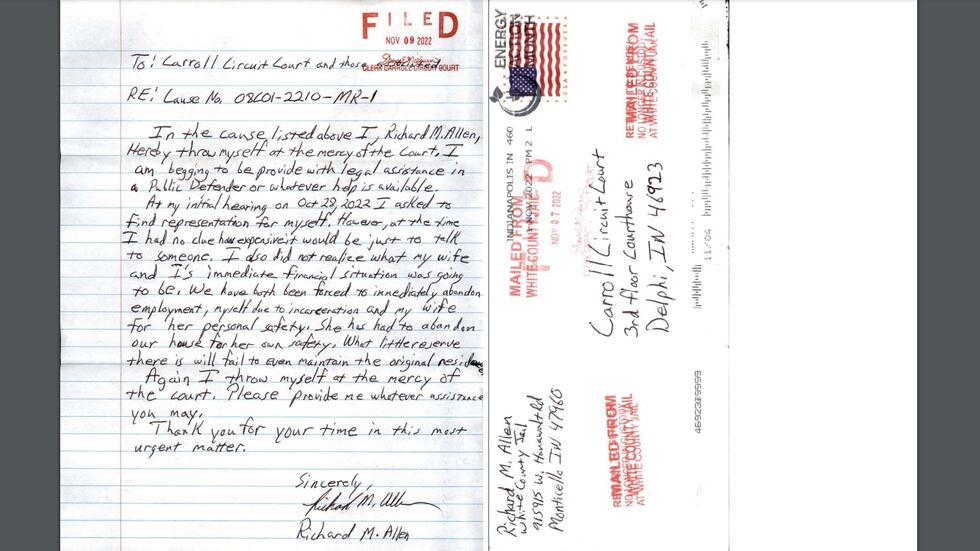 FILED
NOV 09 2022
CLERK CARROLL CIRCUIT COURT
To: Carroll Circuit Court and those
RE: Cause No. 08C01-2210-MR-1
In the cause listed above I, Richard M. Allen,
Hereby throw myself at the mercy of the Court. I
am begging to be provide with legal assistance in
a Public Defender or whatever help is available.
At my initial hearing on Oct 28, 2022 I asked to
find representation for myself. However, at the time
I had no clue how expensive it would be just to talk
to someone. I also did not realize what my wife
and I's immediate financial situation was going
to be. We have both been forced to immediately abandon
employment, myself due to incarceration and my wife
for her personal safety. She has had to abandon
our house for her own safety. What little reserve
there is will fail to even maintain the original
Again I throw myself at the mercy of
the court. Please provide me whatever assistance
you may.
Thank you for your time in this most
urgent matter.
Sincerely,
Richard M. Allen
Richard M. Allen
ENERGY
ACTION
MONTH
USA FOREVER
INDIANAPOLIS IN 460
NOV 2022 PM 2 L
MAILED FROM
WHITE COUNTY JAIL
NOV 07 2022
MAILED FROM
WHITE COUNTY JAIL
Carroll Circuit Court
3rd floor Courthouse
Delphi, IN 46923
Richard M. Allen
White County Jail
915915 W. Hanawalt Rd
Monticello IN 47960
MAILED FROM
WHITE COUNTY JAIL
11/04
46923@9999